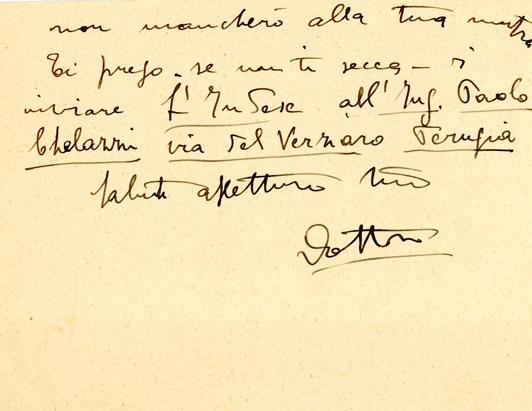 non mancherò alla tua mostra
Ti prego - se non ti secca - di
inviare l'Indese all'Ing. Paolo
Chelazzi via del Verzaro Perugia
saluti affettuosi tuo
Dottori